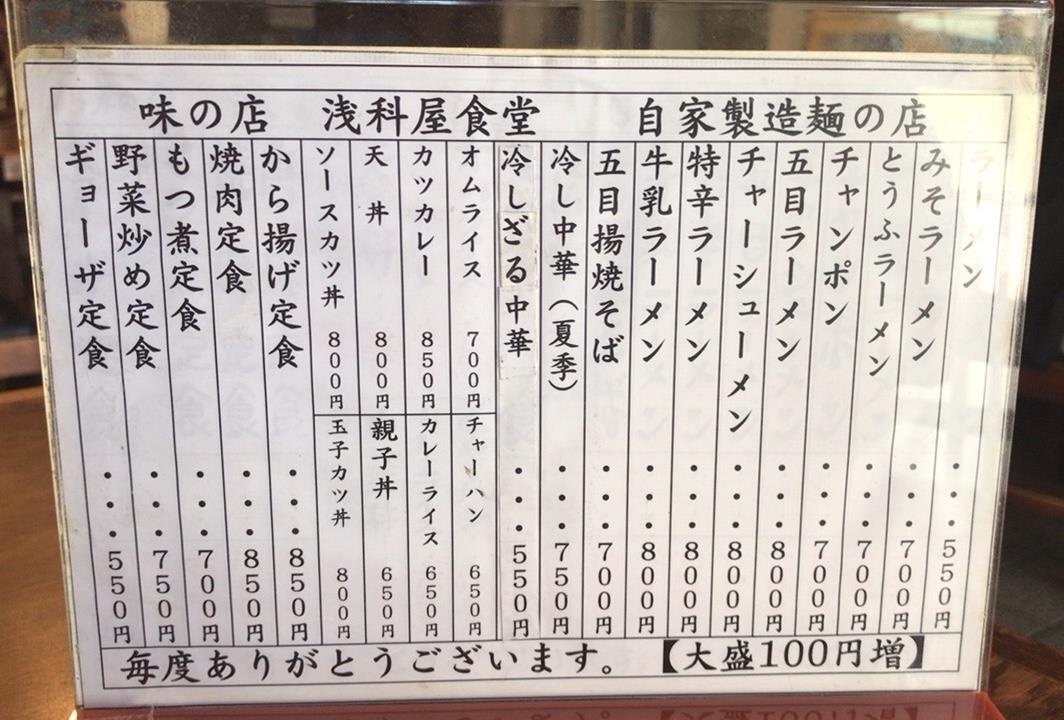 味の店 浅科屋食堂 自家製造麺の店
ラーメン・・・550円
みそラーメン・・・700円
とうふラーメン・・・700円
チャンポン・・・700円
五目ラーメン・・・800円
チャーシューメン・・・800円
特辛ラーメン・・・800円
牛乳ラーメン・・・800円
五目揚焼そば・・・700円
冷し中華(夏季)・・・750円
冷しざる中華・・・550円
オムライス 700円
チャーハン 650円
カツカレー 850円
カレーライス 650円
天丼 800円
親子丼 650円
ソースカツ丼 800円
玉子カツ丼 800円
から揚げ定食・・・850円
焼肉定食・・・850円
もつ煮定食・・・700円
野菜炒め定食・・・750円
ギョーザ定食・・・550円
毎度ありがとうございます。【大盛100円増】